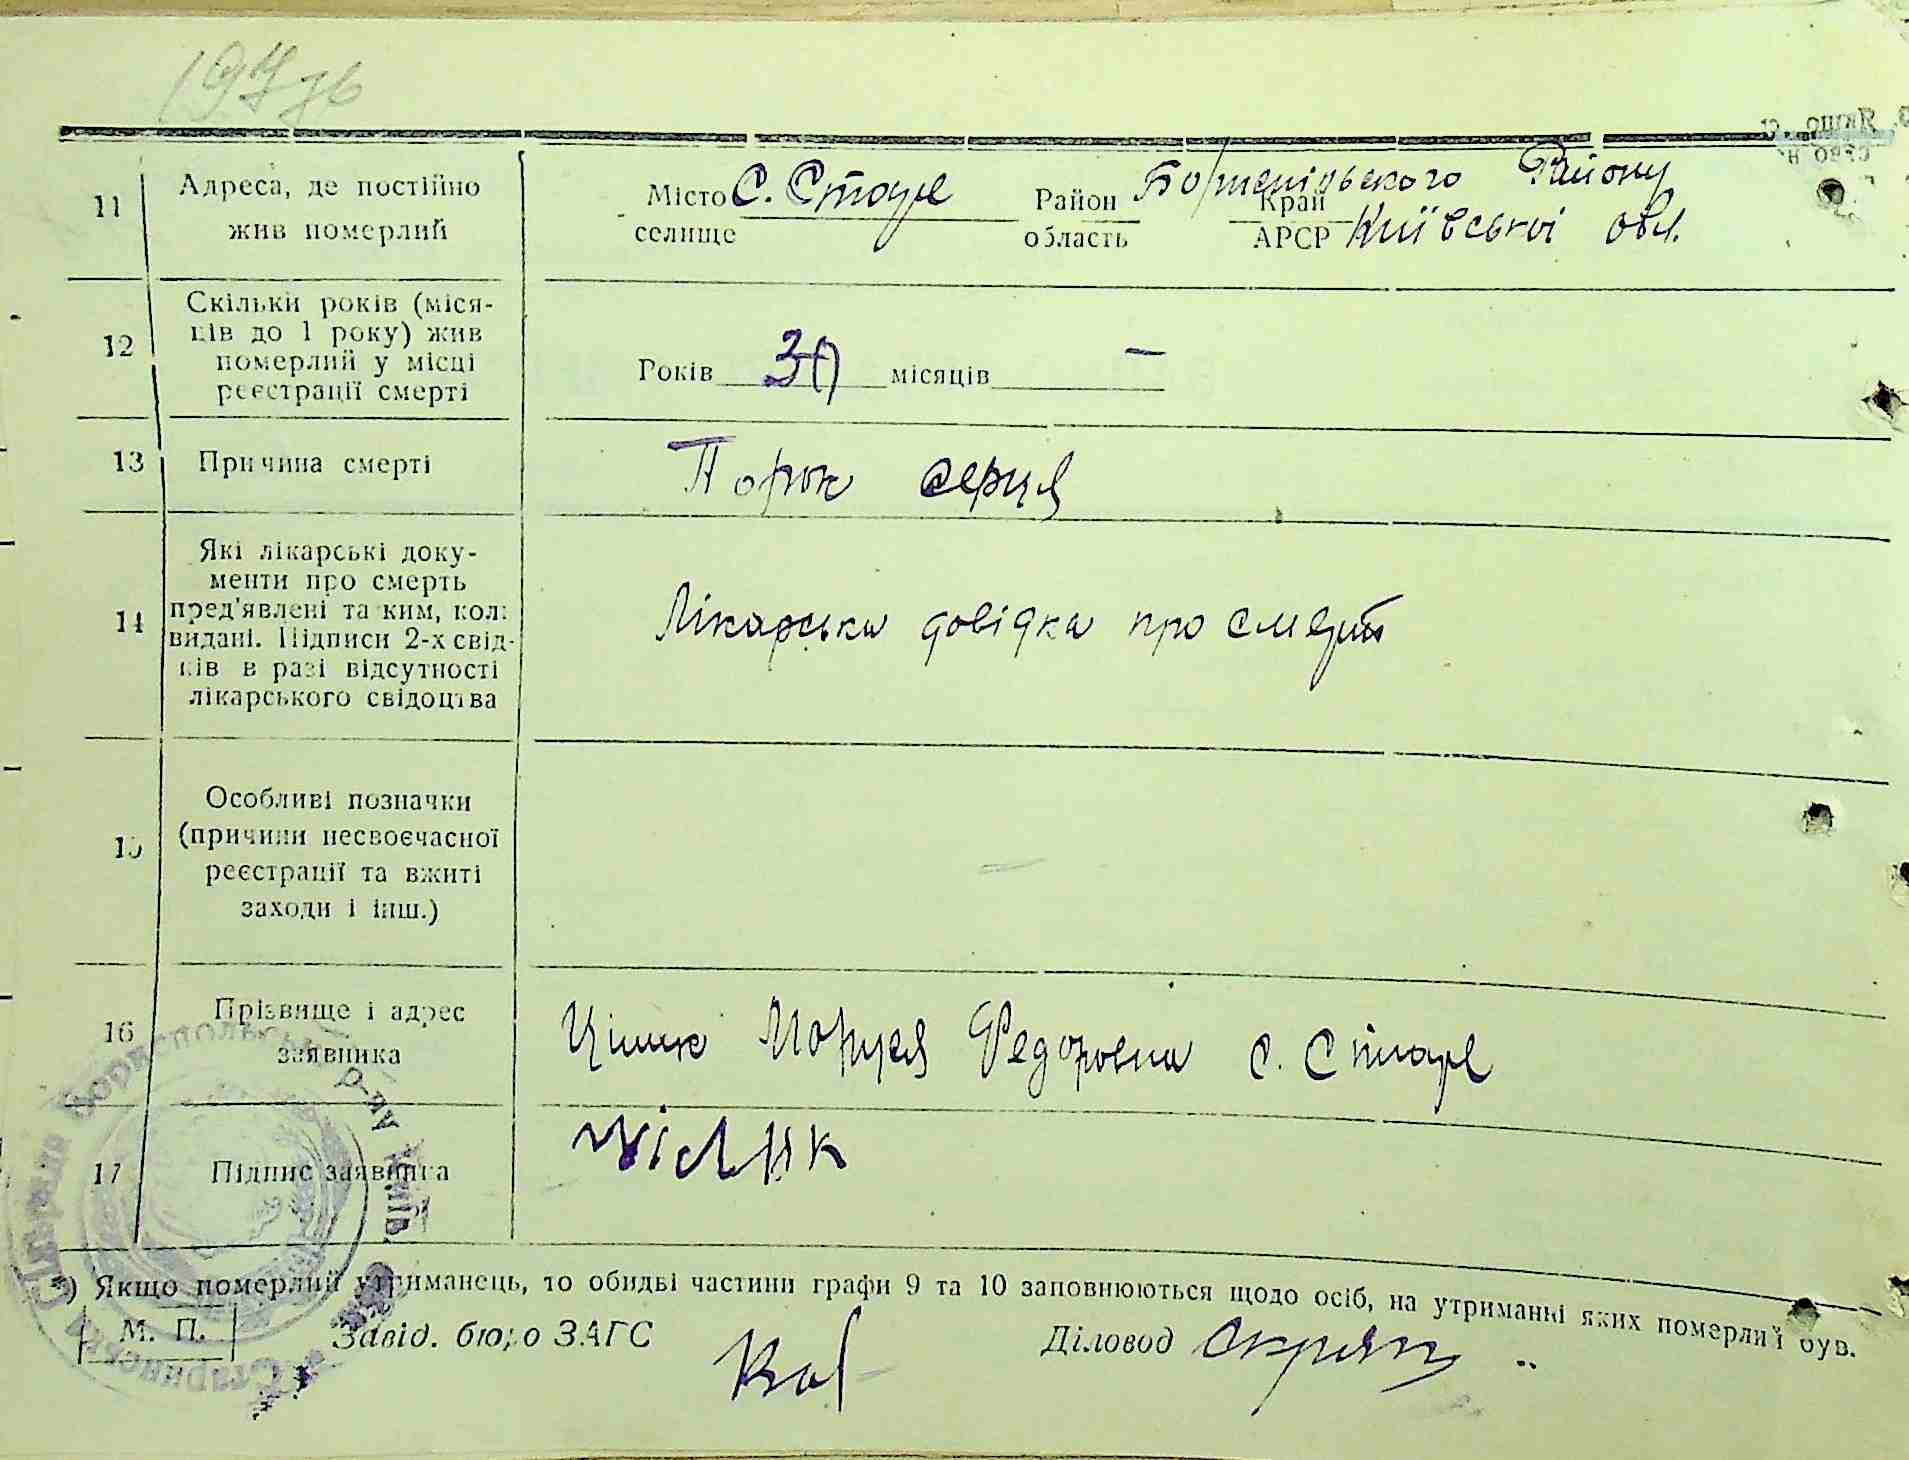 11
Адреса, де постійно
жив померлий
Місто С. Старе Район Бориспільского Краї Району
селище область АРСР Київської обл.
12
Скільки років (міся-
ців до 1 року) жив
померлий у місці
реєстрації смерті
Років 30 місяців —
13 Причина смерті Порок серця
14
Які лікарські доку-
менти про смерть
пред'явлені та ким, кол:
видані. Підписи 2-х свід-
ків в разі відсутності
лікарського свідоцтва
Лікарська довідка про смерть
15
Особливі позначки
(причини несвоєчасної
реєстрації та вжиті
заходи і інш.)
—
16
Прізвище і адрес
заявника
Цілик Маруся Федоровна с. Старе
17 Підпис заявника Цілик
*) Якщо померлий утриманець, то обидві частини графи 9 та 10 заповнюються щодо осіб, на утриманні яких померлий був.
М. П. Завід. бюро ЗАГС Діловод